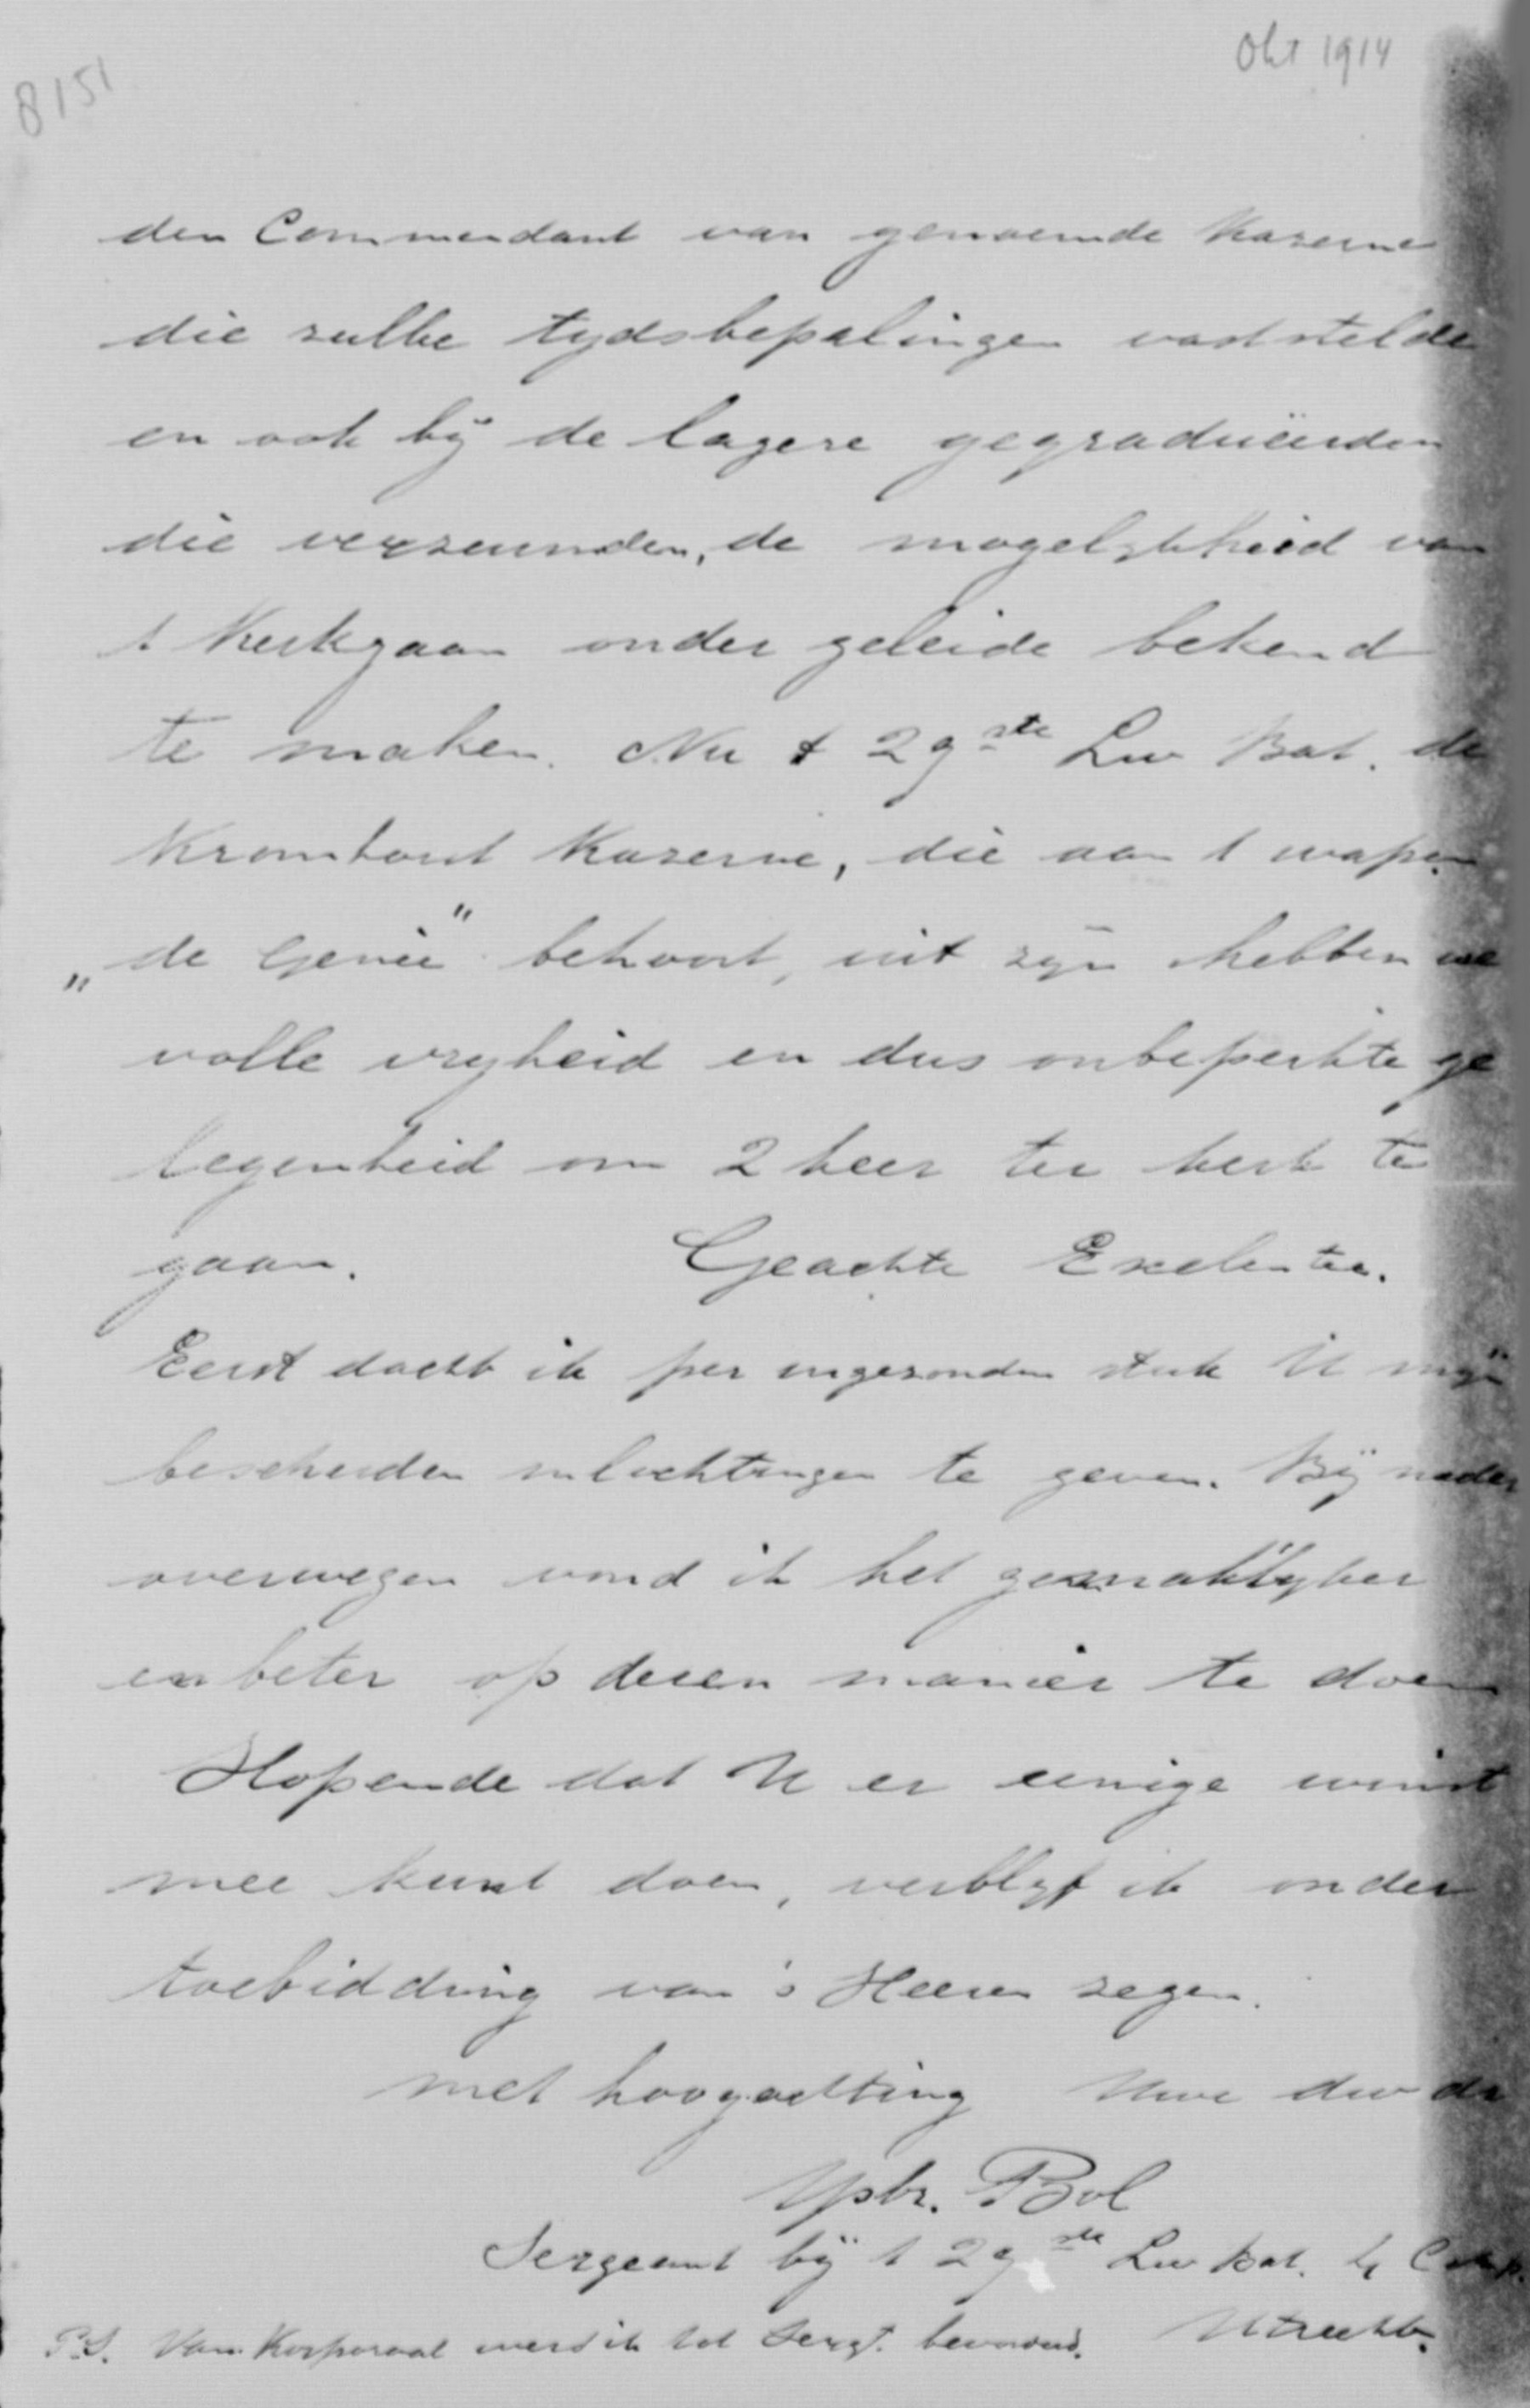 Okt 1914
8151
den Commendant van genoemde Kazerne
die zulke tydsbepalingen vaststelde
en ook bÿ de lagere gegradueerden
die verzuimden, de mogelykheid van
't Kerkgaan onder geleide bekend
te maken. Nu 't 29ste Lw Bat. de
Kromhout Kazerne, die aan 't wapen
„de Genie” behoort, uit zyn hebben we
volle vryheid en dus onbeperkte ge
legenheid om 2 keer ter kerk te
gaan. Geachte Exelentie.
Eerst dacht ik per ingezonden stuk U mÿn
bescheiden inlichtingen te geven. Bÿ nader
overwegen vond ik het gemaklÿker
en beter op dezen manier te doen
Hopende dat U er eenige winst
mee kunt doen, verblyf ik onder
toebidding van 's Heeren zegen.
met hoogachting Uwe dw dr
Ypbr. Bol
Sergeant bÿ 't 29ste Lw Bat. 4 Comp.
P.S. Van Korporaal werd ik tot Sergt. bevorderd. Utrecht.